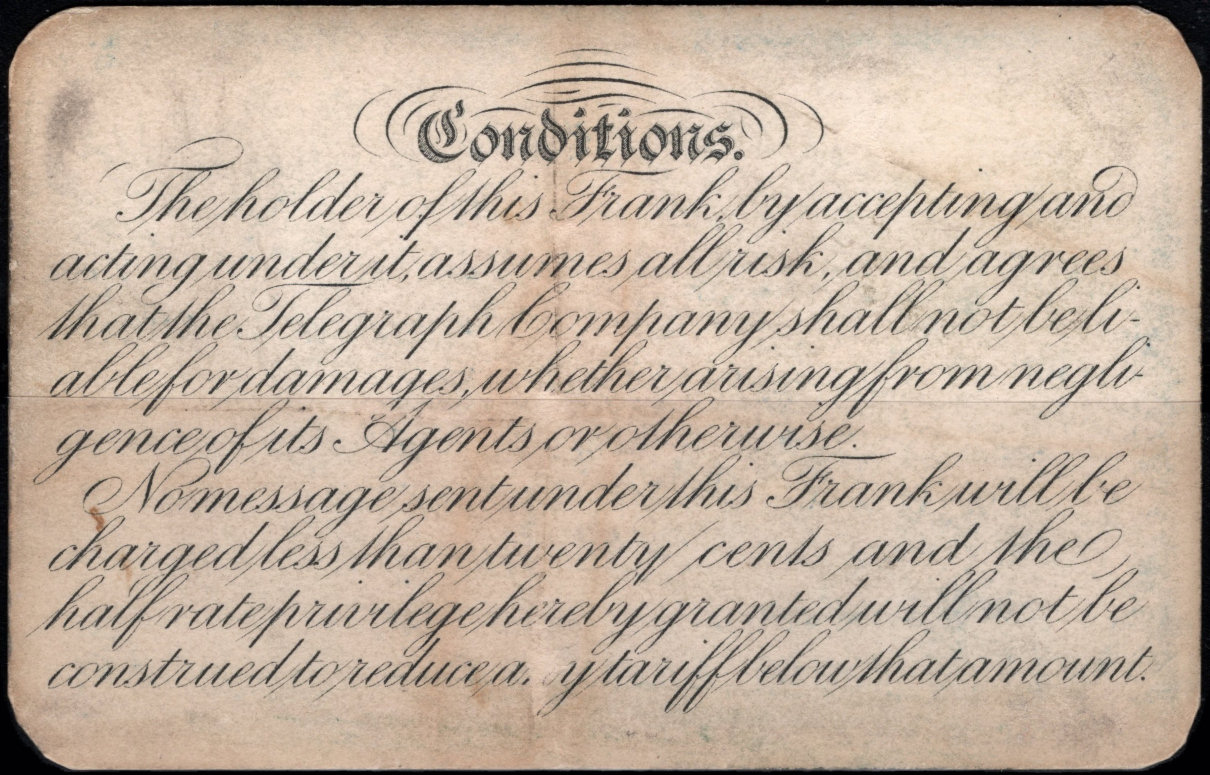 Conditions.
The holder of this Frank, by accepting and
acting under it, assumes all risk, and agrees
that the Telegraph Company shall not be li-
able for damages, whether arising from negli-
gence of its Agents or otherwise.
No message sent under this Frank will be
charged less than twenty cents and the
half rate privilege hereby granted will not be
construed to reduce a y tariff below that amount.